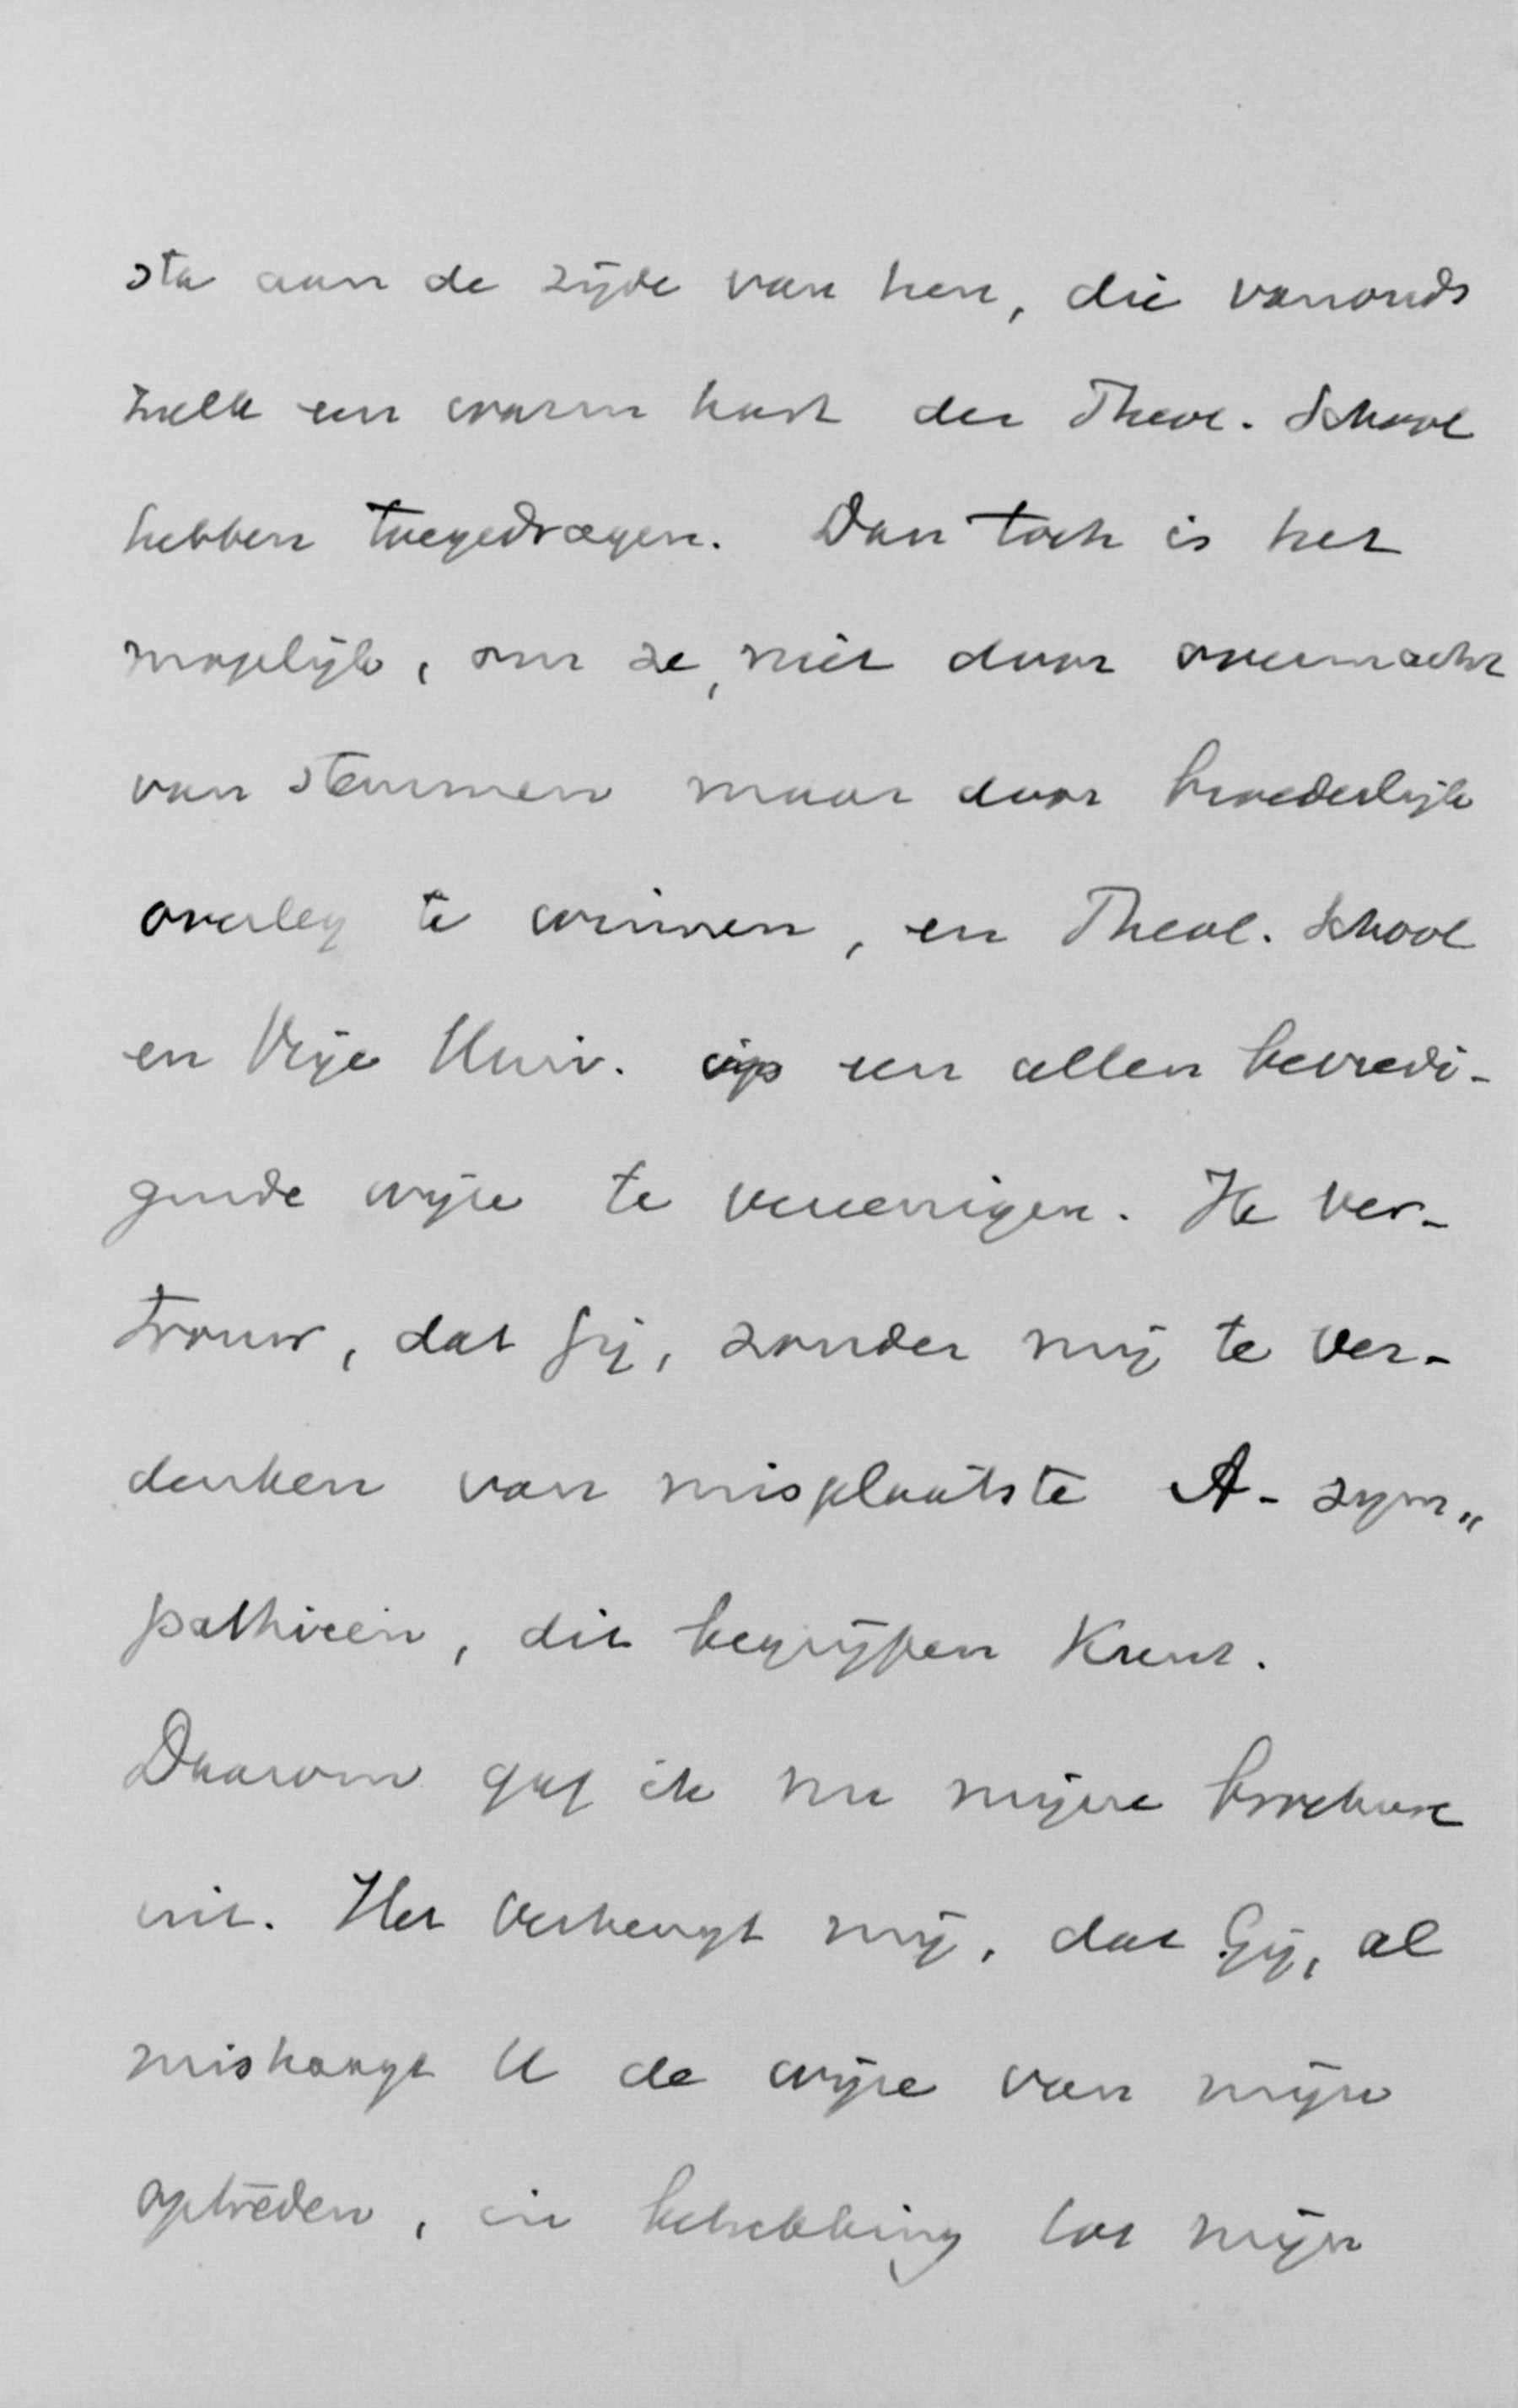 sta aan de zijde van hen, die vanouds
zulk een warm hart der Theol. School
hebben toegedragen. Dan toch is het
mogelijk, om ze, niet door overmacht
van stemmen maar door broederlijk
overleg te winnen, en Theol. School
en Vrije Univ. op een allen bevredi-
gende wijze te vereenigen. Ik ver-
trouw, dat Gij, zonder mij te ver-
denken van misplaatste A-sym„
pathieën, dit begrijpen kunt.
Daarom gaf ik nu mijne brochure
uit. Het verheugt mij, dat Gij, al
mishaagt U de wijze van mijn
optreden, in betrekking tot mijn